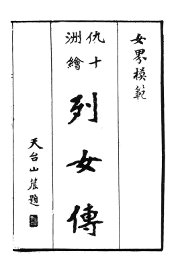 女界模範
仇十
洲繪
列女傳
天台山農題